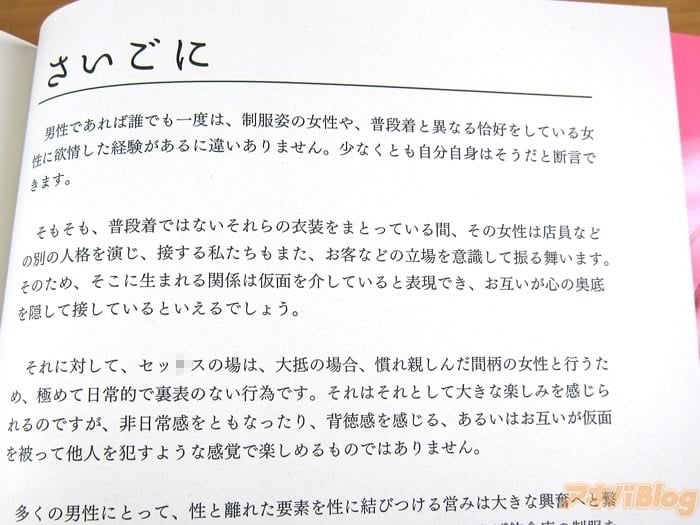 さいごに
男性であれば誰でも一度は、制服姿の女性や、普段着と異なる恰好をしている女
性に欲情した経験があるに違いありません。少なくとも自分自身はそうだと断言で
きます。
そもそも、普段着ではないそれらの衣装をまとっている間、その女性は店員など
の別の人格を演じ、接する私たちもまた、お客などの立場を意識して振る舞います。
そのため、そこに生まれる関係は仮面を介していると表現でき、お互いが心の奥底
を隠して接しているといえるでしょう。
それに対して、セッ スの場は、大抵の場合、慣れ親しんだ間柄の女性と行うた
め、極めて日常的で裏表のない行為です。それはそれとして大きな楽しみを感じら
れるのですが、非日常感をともなったり、背徳感を感じる、あるいはお互いが仮面
を被って他人を犯すような感覚で楽しめるものではありません。
多くの男性にとって、性と離れた要素を性に結びつける営みは大きな興奮へと繋
アキバBlog